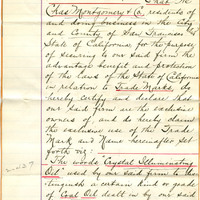 That we
Chas Montgomery & Co. residents of
and doing business in the City
and County of San Francisco
State of California for the purpose
of securing to our said firm the
advantage benefit and protection
of the laws of the State of California
in relation to Trade Marks, do
hereby certify and declare that
our said firm are the exclusive
owners of, and do hereby claim
the exclusive use of the Trade
Mark and Name hereinafter set
forth viz:
The words "Crystal Illuminating
Oil" used by our said firm to dis-
tinguish a certain kind or grade
of Coal Oil dealt in by our said